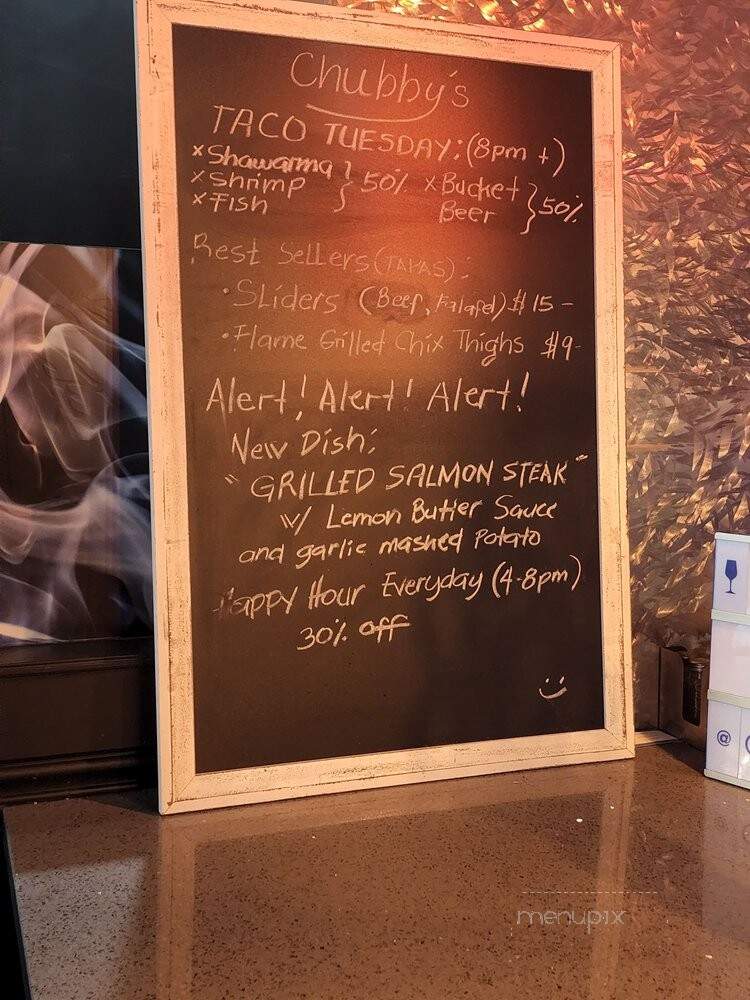 Chubby's
TACO TUESDAY: (8pm +)
x Shawarma
x Shrimp } 50% x Bucket
x Fish
Beer } 50%
Best Sellers (TAPAS):
· Sliders (Beef, Falafel) $15-
· Flame Grilled Chix Thighs $9-
Alert! Alert! Alert!
New Dish:
"GRILLED SALMON STEAK"
w/ Lemon Butter Sauce
and garlic mashed Potato
Happy Hour Everyday (4-8pm)
30% off
@
menupix